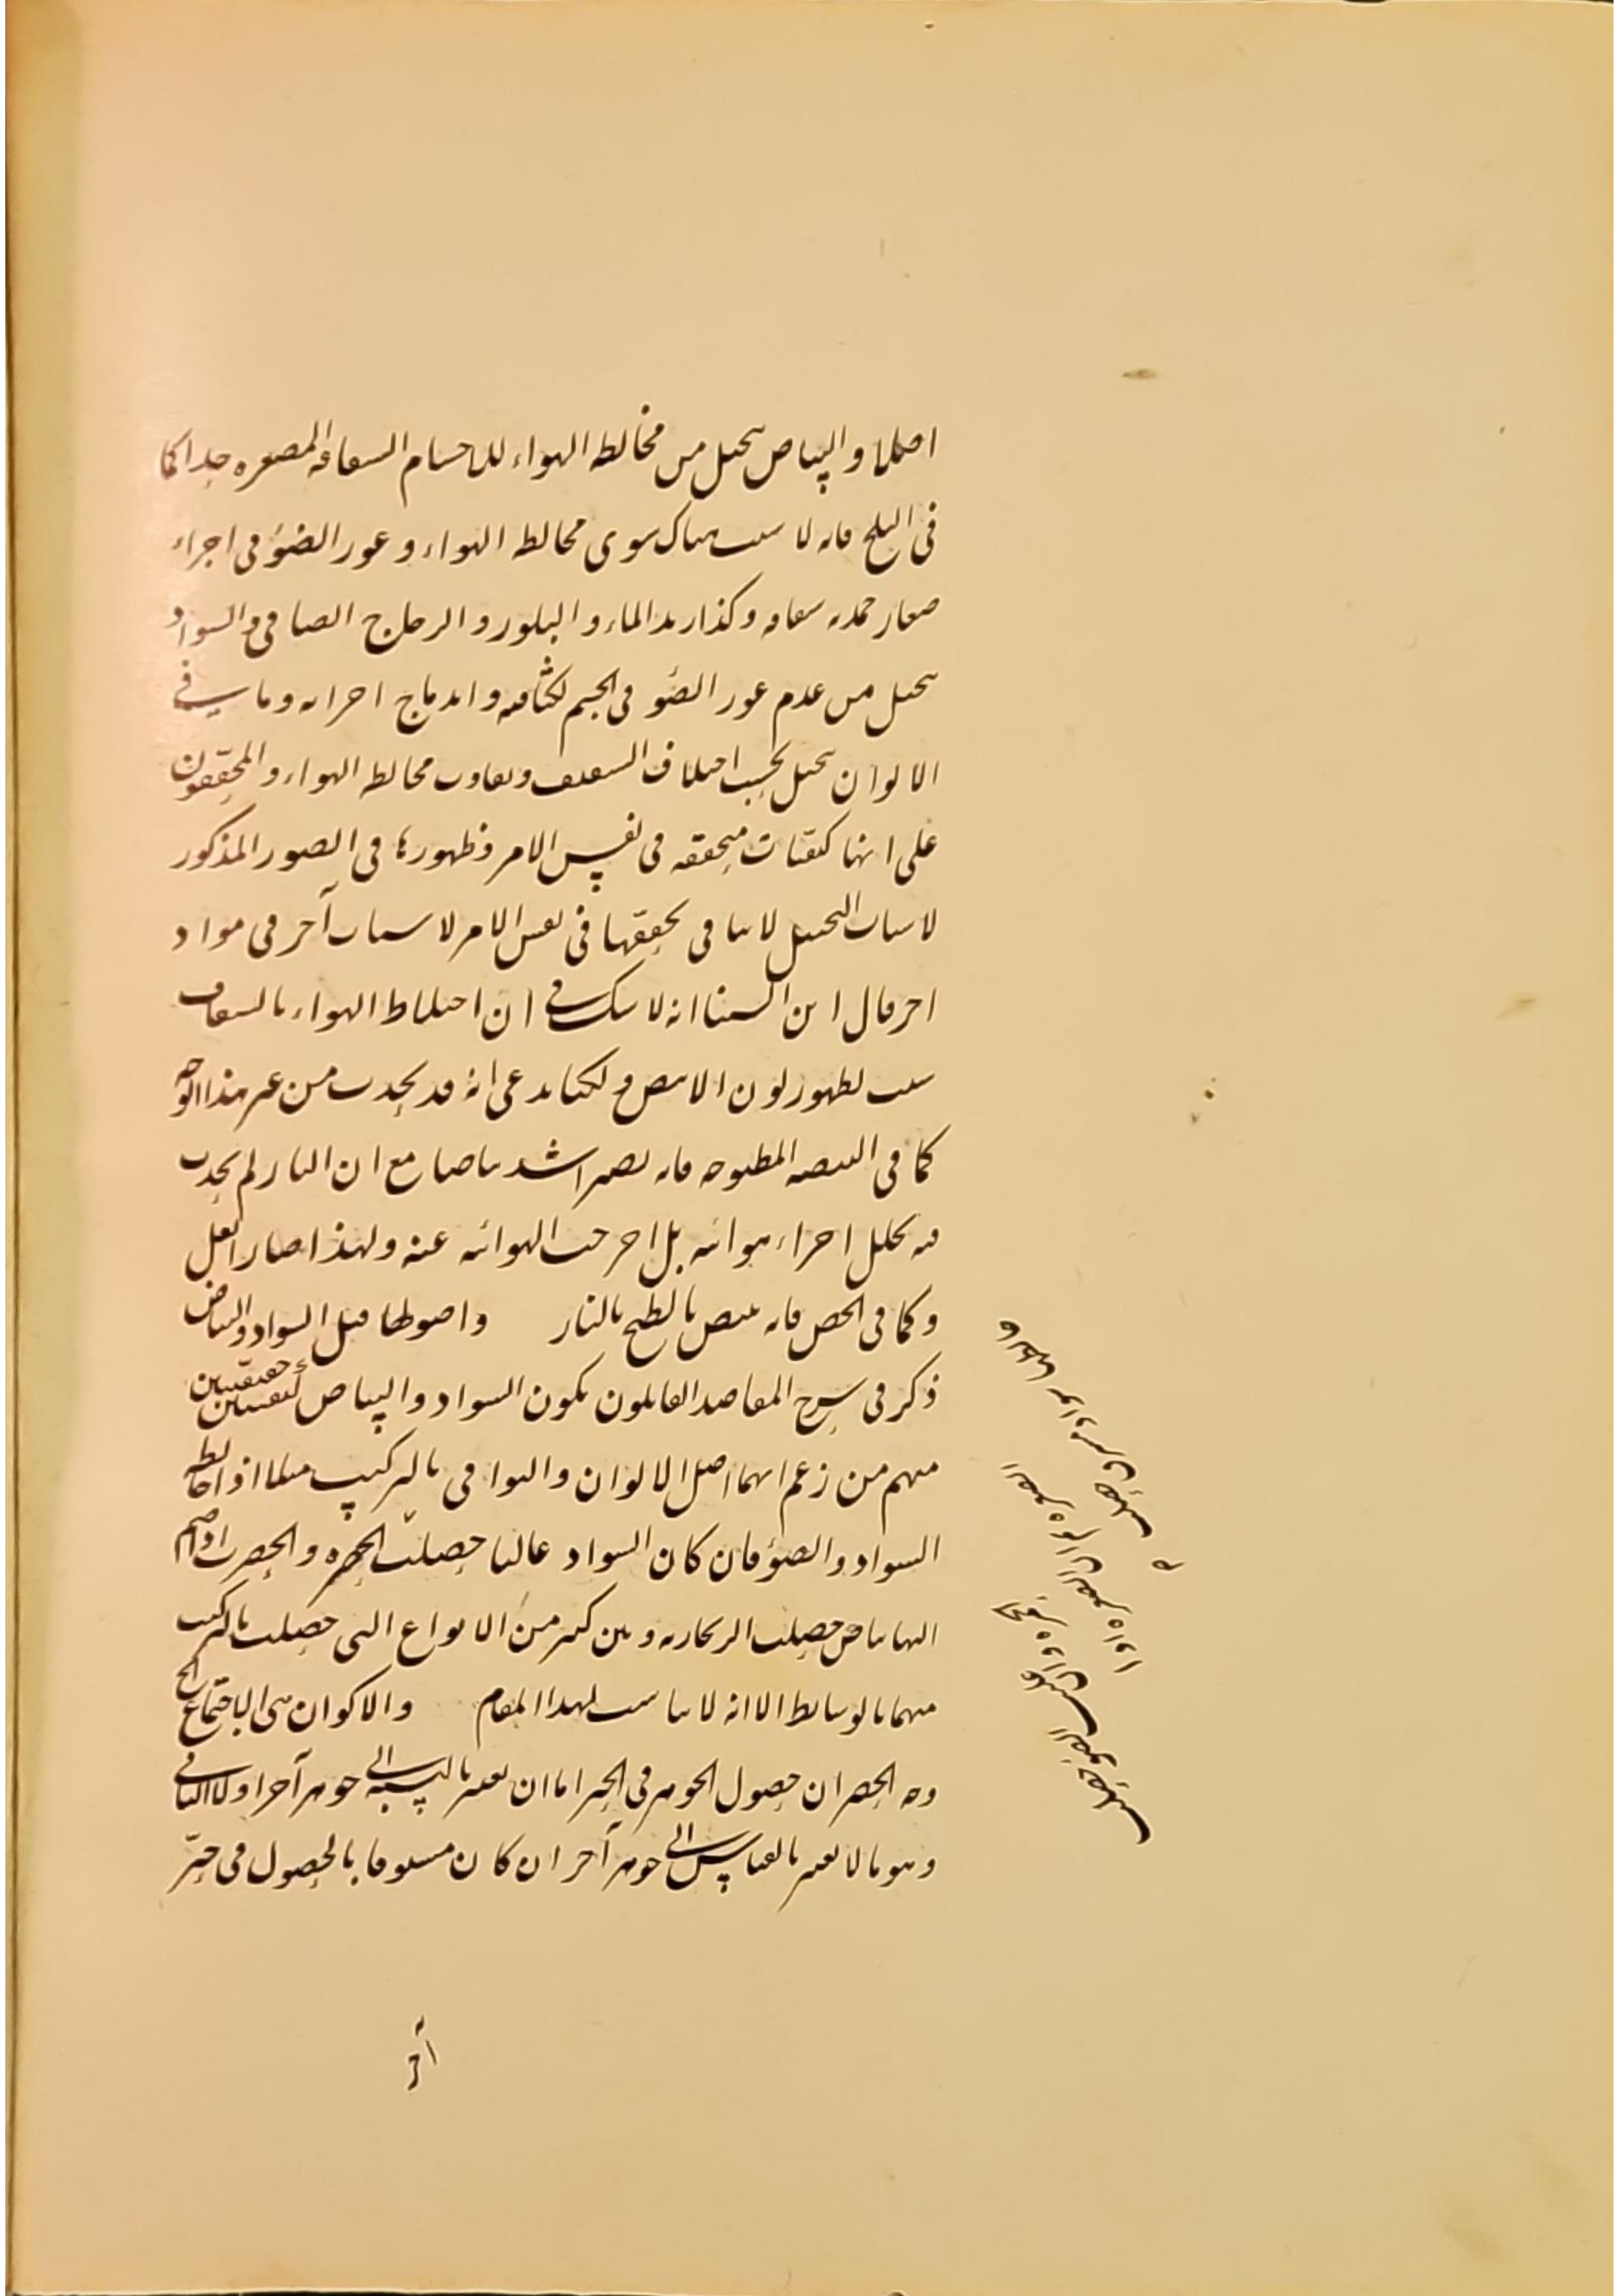 اصلا والبياض يتخيل من مخالطة الهواء للاجسام الشفافة المتصغرة جدا كما
في الثلج فانه لا سبب هناك سوى مخالطة الهواء وغور الضوء في اجزاء
صغار جمدية شفافة وكذا زبد الماء والبلور والزجاج الصافي والسواد
يتخيل من عدم غور الضوء في الجسم لكثافته واندماج اجزائه وما بقي في
الالوان يتخيل بحسب اختلاف الشفيف وتفاوت مخالطة الهواء والمحققون
على انها كيفيات متحققة في نفس الامر وظهورها في الصور المذكور
لاسباب التخيل لا ينافي تحققها في نفس الامر لاسباب آخر في مواد
اخر قال ابن السينا انه لا شك في ان اختلاط الهواء بالشفاف
سبب لظهور لون الابيض ولكنا ندعي انه قد يحدث من غير هذا الوجه
كما في البيضة المطبوخة فانه يصير اشد بياضا مع ان النار لم يحدث
فيه تخلل اجزاء هوائية بل اخرجت الهوائية عنه ولهذا صار اثقل
وكما في الجص فانه يبيض بالطبخ بالنار واصولها قيل السواد والبياض
ذكر في شرح المقاصد القائلون بكون السواد والبياض كيفيتين حقيقيتين
منهم من زعم انهما اصل الالوان والبواقي بالتركيب مثلا اذا خالط
السواد والضوء فان كان السواد غالبا حصلت الحمرة والخضرة اذا ضم
اليها بياض حصلت الزنجارية وبين كثير من الانواع التي حصلت بالتركيب
منهما بالوسائط الا انه لا يناسب لهذا المقام والاكوان هي الاجتماع الخ
وجه الحصر ان حصول الجوهر في الحيز اما ان يعتبر بالنسبة الى جوهر آخر اولا الثاني
وهو ما لا يعتبر بالقياس الى جوهر آخر ان كان مسبوقا بالحصول في حيز
آخر